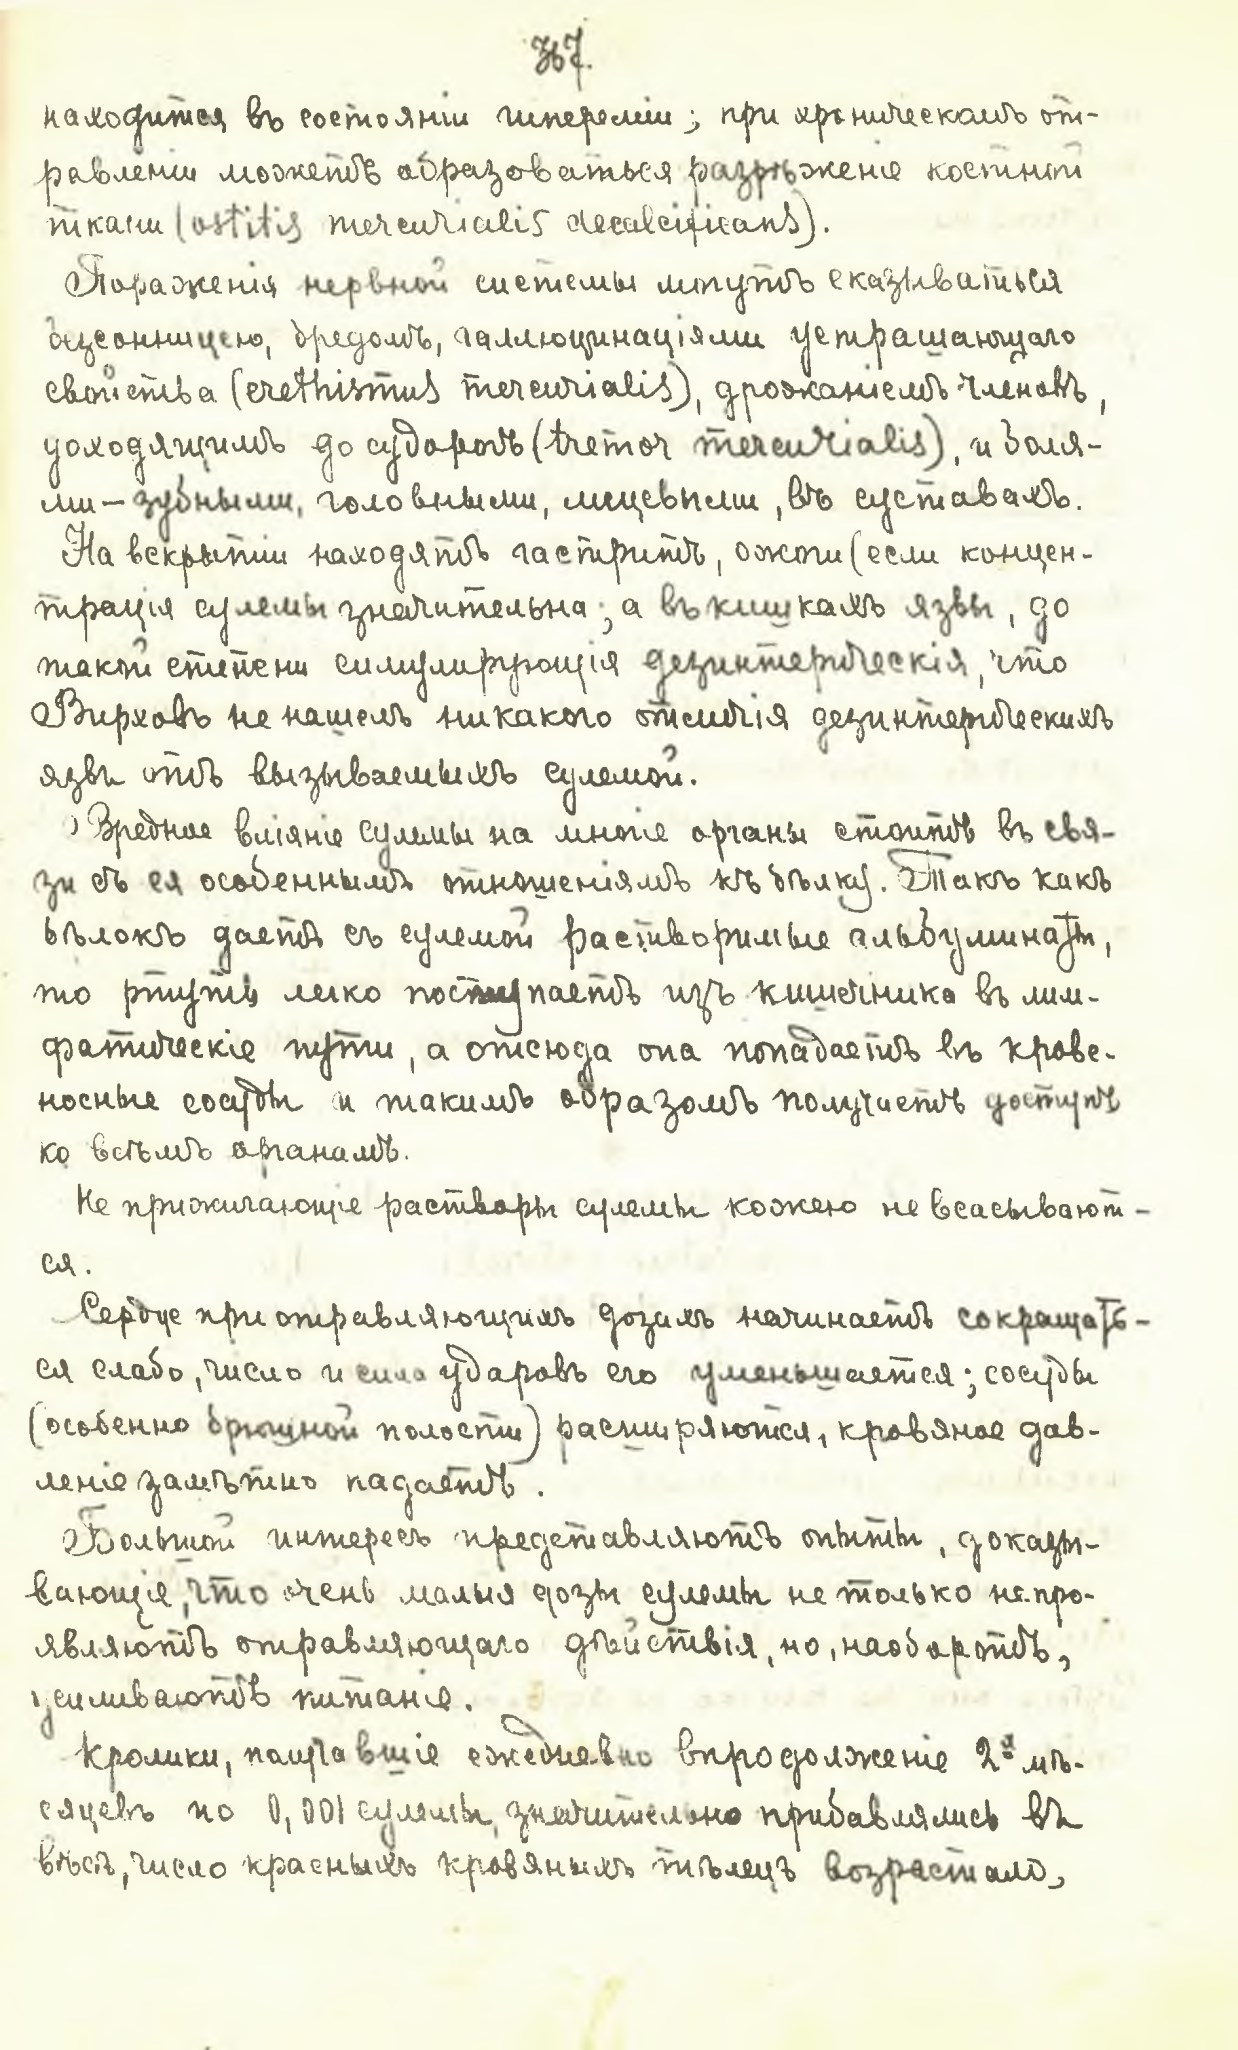 367.
находится въ состояніи гипереміи; при хроническомъ от-
равленіи можетъ образоваться разрѣженіе костной
ткани (ostitis mercurialis decalcificans).
Пораженія нервной системы могутъ сказываться
безсонницею, бредомъ, галлюцинаціями устрашающаго
свойства (erethismus mercurialis), дрожаніемъ членовъ,
доходящимъ до судорогъ (tremor mercurialis), и боля-
ми — зубными, головными, лицевыми, въ суставахъ.
На вскрытіи находятъ гастритъ, ожоги (если концен-
трація сулемы значительна; а въ кишкахъ язвы, до
такой степени симулирующія дезинтерическія, что
Вирховъ не нашелъ никакого отличія дезинтерическихъ
язвъ отъ вызываемыхъ сулемой.
Вредное вліяніе сулемы на многіе органы стоитъ въ свя-
зи съ ея особеннымъ отношеніямъ къ бѣлку. Такъ какъ
бѣлокъ даетъ съ сулемой растворимые альбуминаты,
то ртуть легко поступаетъ изъ кишечника въ лим-
фатическіе пути, а отсюда она попадаетъ въ крове-
носные сосуды и такимъ образомъ получаетъ доступъ
ко всѣмъ органамъ.
Не прижигающіе растворы сулемы кожею не всасывают-
ся.
Сердце при отравляющихъ дозахъ начинаетъ сокращать-
ся слабо, число и сила ударовъ его уменьшается; сосуды
(особенно брюшной полости) расширяются, кровяное дав-
леніе замѣтно падаетъ.
Большой интересъ представляютъ опыты, доказы-
вающіе, что очень малыя дозы сулемы не только не про-
являютъ отравляющаго дѣйствія, но, наоборотъ,
усиливаютъ питаніе.
Кролики, получавшіе ежедневно впродолженіе 2ˣ мѣ-
сяцевъ по 0,001 сулемы, значительно прибавлялись въ
вѣсѣ, число красныхъ кровяныхъ тѣлецъ возрастало,